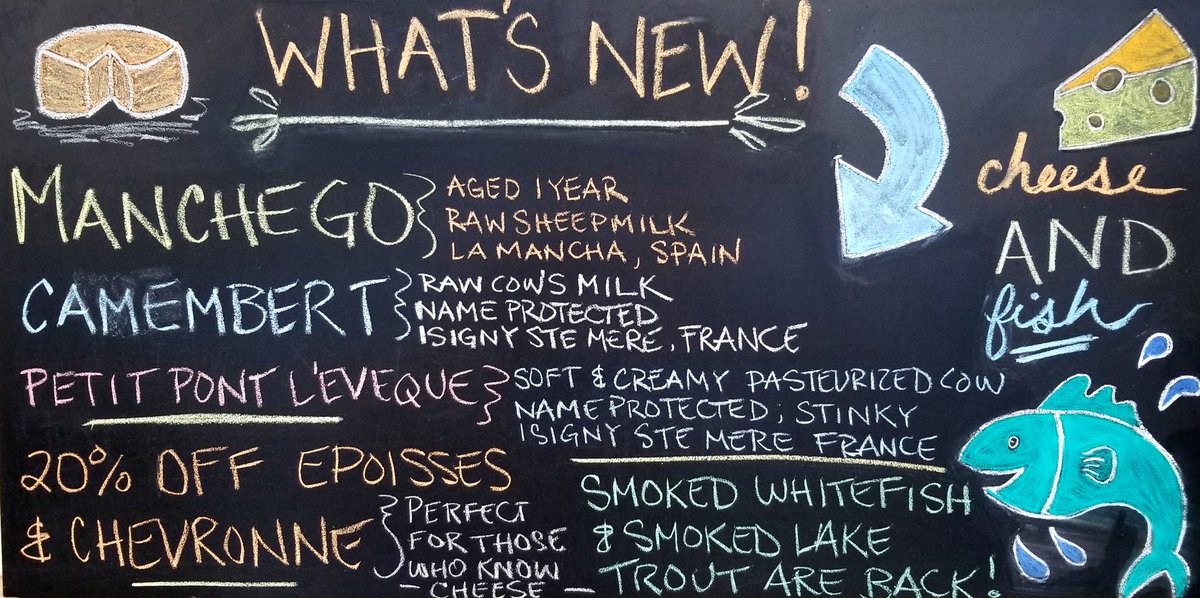 WHAT'S NEW!
cheese
AND
fish
MANCHEGO
AGED 1 YEAR
RAW SHEEP MILK
LA MANCHA, SPAIN
CAMEMBERT
RAW COW'S MILK
NAME PROTECTED
ISIGNY STE MERE, FRANCE
PETIT PONT L'EVEQUE
SOFT & CREAMY PASTEURIZED COW
NAME PROTECTED; STINKY
ISIGNY STE MERE FRANCE
20% OFF EPOISSES
& CHEVRONNE
PERFECT
FOR THOSE
WHO KNOW
— CHEESE —
SMOKED WHITEFISH
& SMOKED LAKE
TROUT ARE BACK!